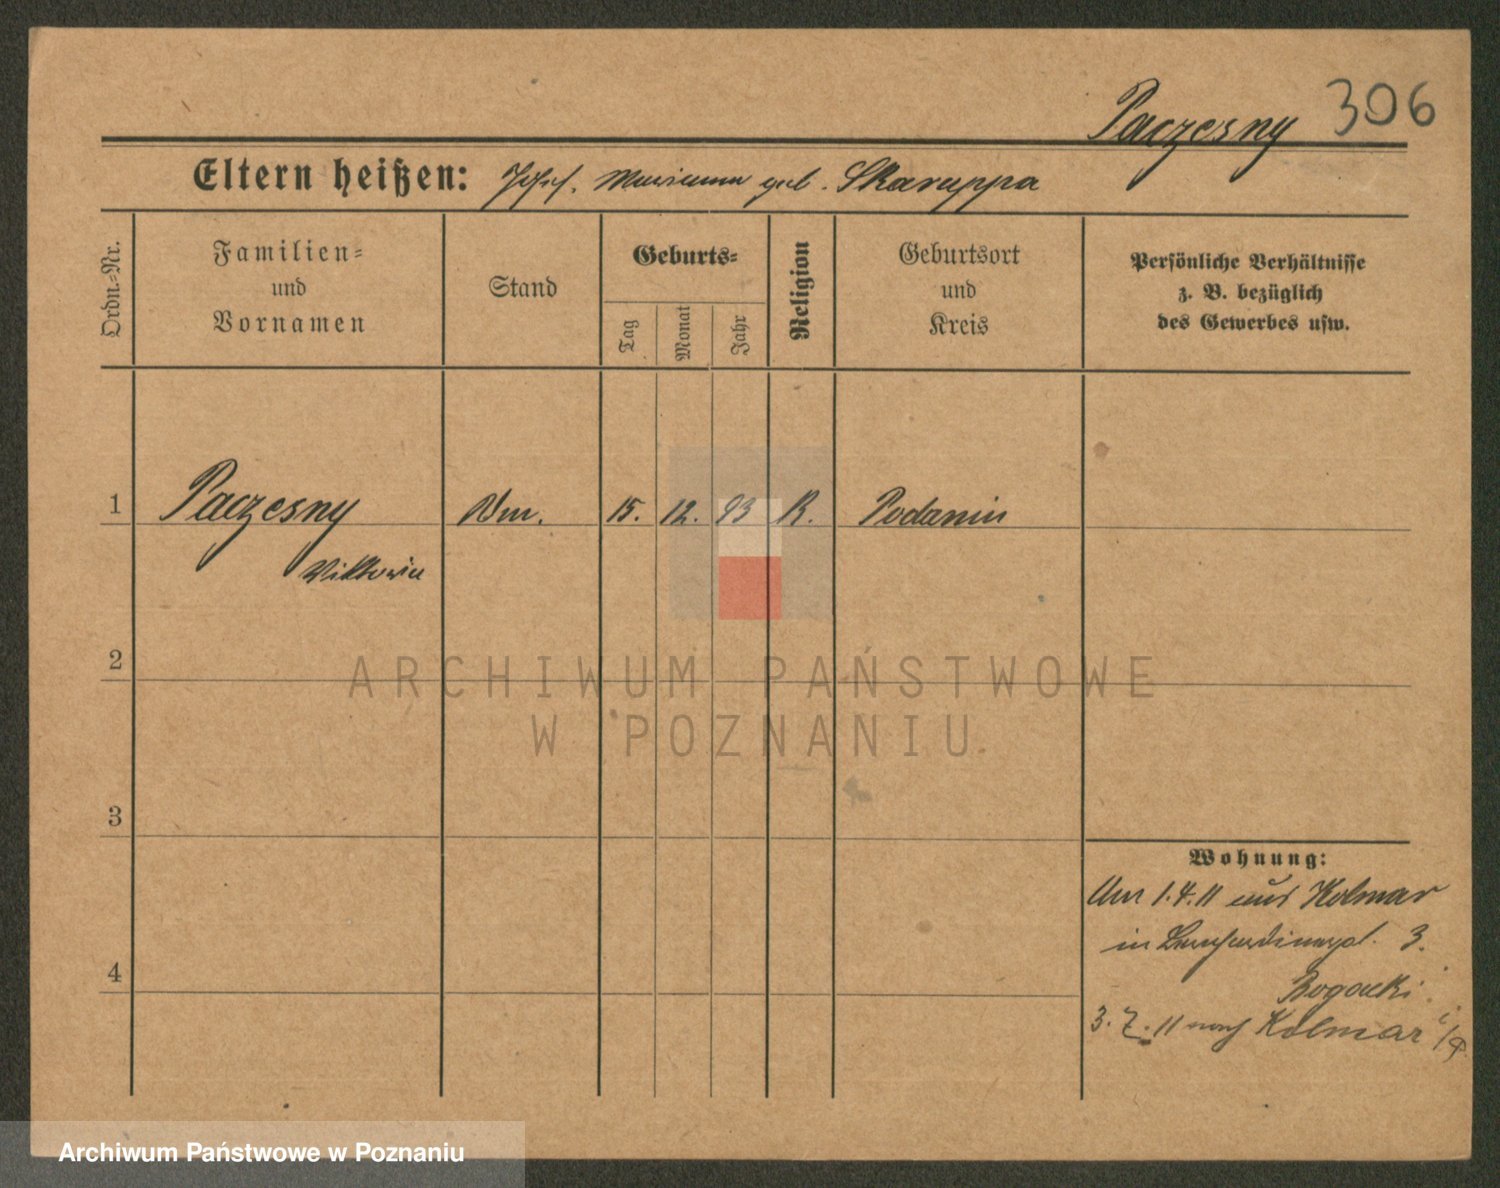 Paczesny 306
Eltern heißen: Josef. Marianna geb. Skaruppa
Ordn.-Nr.
Familien-
und
Vornamen
Stand
Geburts-
Tag
Monat
Jahr
Religion
Geburtsort
und
Kreis
Persönliche Verhältnisse
z. B. bezüglich
des Gewerbes usw.
1 Paczesny 15. 12. 93 K. Podanin
Viktoria
2
ARCHIWUM PAŃSTWOWE
W POZNANIU
3
Wohnung:
Am 1.4.11 aus Kolmar
in Bernhardinerpl. 3.
4
Bogacki
3. 7. 11 nach Kolmar i/P.
Archiwum Państwowe w Poznaniu